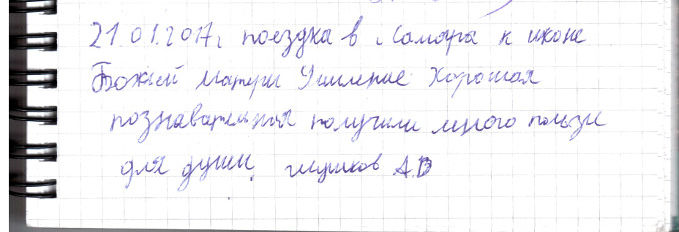 21.01.2017г. поездка в г.Самара к иконе
Божией Матери Умиление Хорошая
познавательная получили много пользы
для души. Глушков А.В